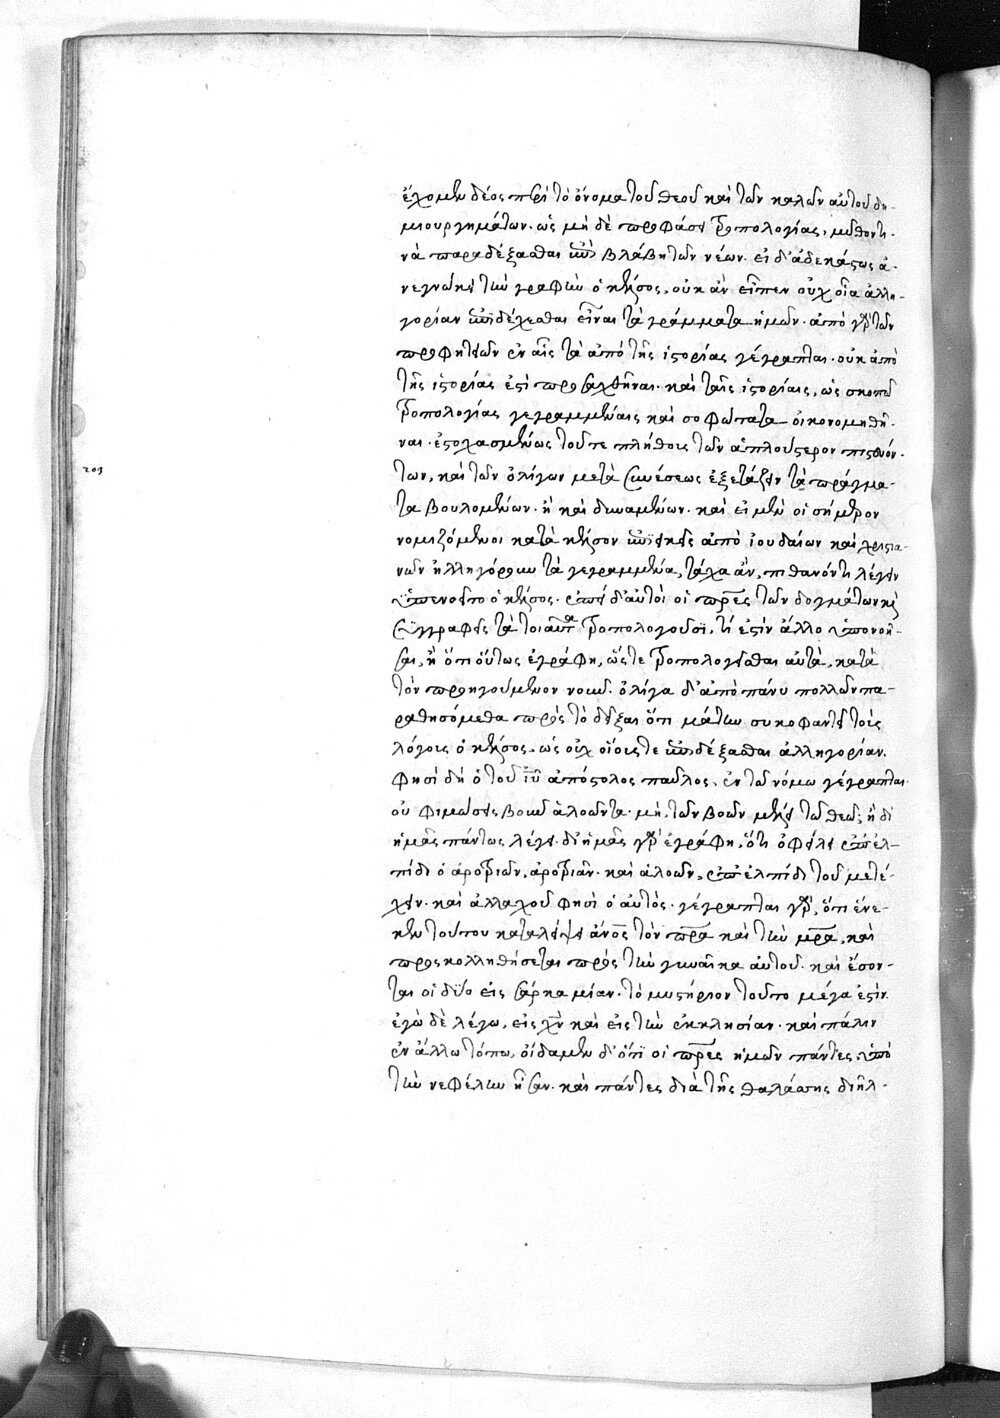 ἔχομεν δέος περὶ τὸ ὄνομα τοῦ θεοῦ καὶ τῶν καλῶν αὐτοῦ δη-
μιουργημάτων. ὡς μὴ δὲ προφάσει τροπολογίας, μῦθόν τι-
νὰ παραδέξασθαι ἐπὶ βλάβῃ τῶν νέων. εἰ δ' ἀδεκάστως ἀ-
νεγνώκει τὴν γραφὴν ὁ κέλσος, οὐκ ἂν εἶπεν οὐχ οἷα ἀλλη-
γορίαν ἐπιδέχεσθαι εἶναι τὰ γράμματα ἡμῶν. ἀπὸ γὰρ τῶν
προφητειῶν ἐν αἷς τὰ ἀπὸ τῆς ἱστορίας γέγραπται. οὐκ ἀπὸ
τῆς ἱστορίας ἐστὶ προσαχθῆναι. καὶ ταῖς ἱστορίαις, ὡς σκοπῷ
τροπολογίας γεγραμμέναις καὶ σοφώτατα οἰκονομηθῆ-
ναι. ἐστοχασμένως τοῦ τε πλήθους τῶν ἁπλούστερον πιστευόν-
203
των, καὶ τῶν ὀλίγων μετὰ συνέσεως ἐξετάζειν τὰ πράγμα-
τα βουλομένων. ἢ καὶ δυναμένων. καὶ εἰ μὲν οἱ σήμερον
νομιζόμενοι κατὰ κέλσον ἐπιεικεῖς ἀπὸ ἰουδαίων καὶ χριστια-
νῶν ἠλληγόρουν τὰ γεγραμμένα, τάχα ἂν, πιθανόν τι λέγειν
ὑπενοεῖτο ὁ κέλσος. ἐπεὶ δ' αὐτοὶ οἱ πρες τῶν δογμάτων καὶ
συγγραφεῖς τὰ τοιαῦτα τροπολογοῦσι, τί ἐστιν ἄλλο ὑπονοῆ-
σαι, ἢ ὅτι οὕτως ἐγράφη, ὥστε τροπολογεῖσθαι αὐτὰ, κατὰ
τὸν προηγούμενον νοῦν. ὀλίγα δ' ἀπὸ πάνυ πολλῶν πα-
ραθησόμεθα πρὸς τὸ δεῖξαι ὅτι μάτην συκοφαντεῖ τοὺς
λόγους ὁ κέλσος, ὡς οὐχ οἵους τε ἐπιδέξασθαι ἀλληγορίαν.
Φησὶ δὴ ὁ τοῦ ιυ ἀπόστολος παῦλος. ἐν τῷ νόμῳ γέγραπται.
οὐ φιμώσεις βοῦν ἀλοῶντα. μὴ, τῶν βοῶν μέλει τῷ θεῷ; ἢ δι'
ἡμᾶς πάντως λέγει. δι' ἡμᾶς γὰρ ἐγράφη, ὅτι ὀφείλει ἐπ' ἐλ-
πίδι ὁ ἀροτριῶν, ἀροτριᾶν. καὶ ἀλοῶν, ἐπ' ἐλπίδι τοῦ μετέ-
χειν. καὶ ἀλλαχοῦ φησὶ ὁ αὐτός. γέγραπται γὰρ, ὅτι ἕνε-
κεν τούτου καταλείψει ἄνος τὸν πρα καὶ τὴν μρα, καὶ
προσκολληθήσεται πρὸς τὴν γυναῖκα αὐτοῦ. καὶ ἔσον-
ται οἱ δύο εἰς σάρκα μίαν. τὸ μυστήριον τοῦτο μέγα ἐστίν.
ἐγὼ δὲ λέγω, εἰς χν καὶ εἰς τὴν ἐκκλησίαν. καὶ πάλιν
ἐν ἄλλῳ τόπῳ, οἴδαμεν δ' ὅτι οἱ πρες ἡμῶν πάντες, ὑπὸ
τὴν νεφέλην ἦσαν. καὶ πάντες διὰ τῆς θαλάσσης διῆλ-